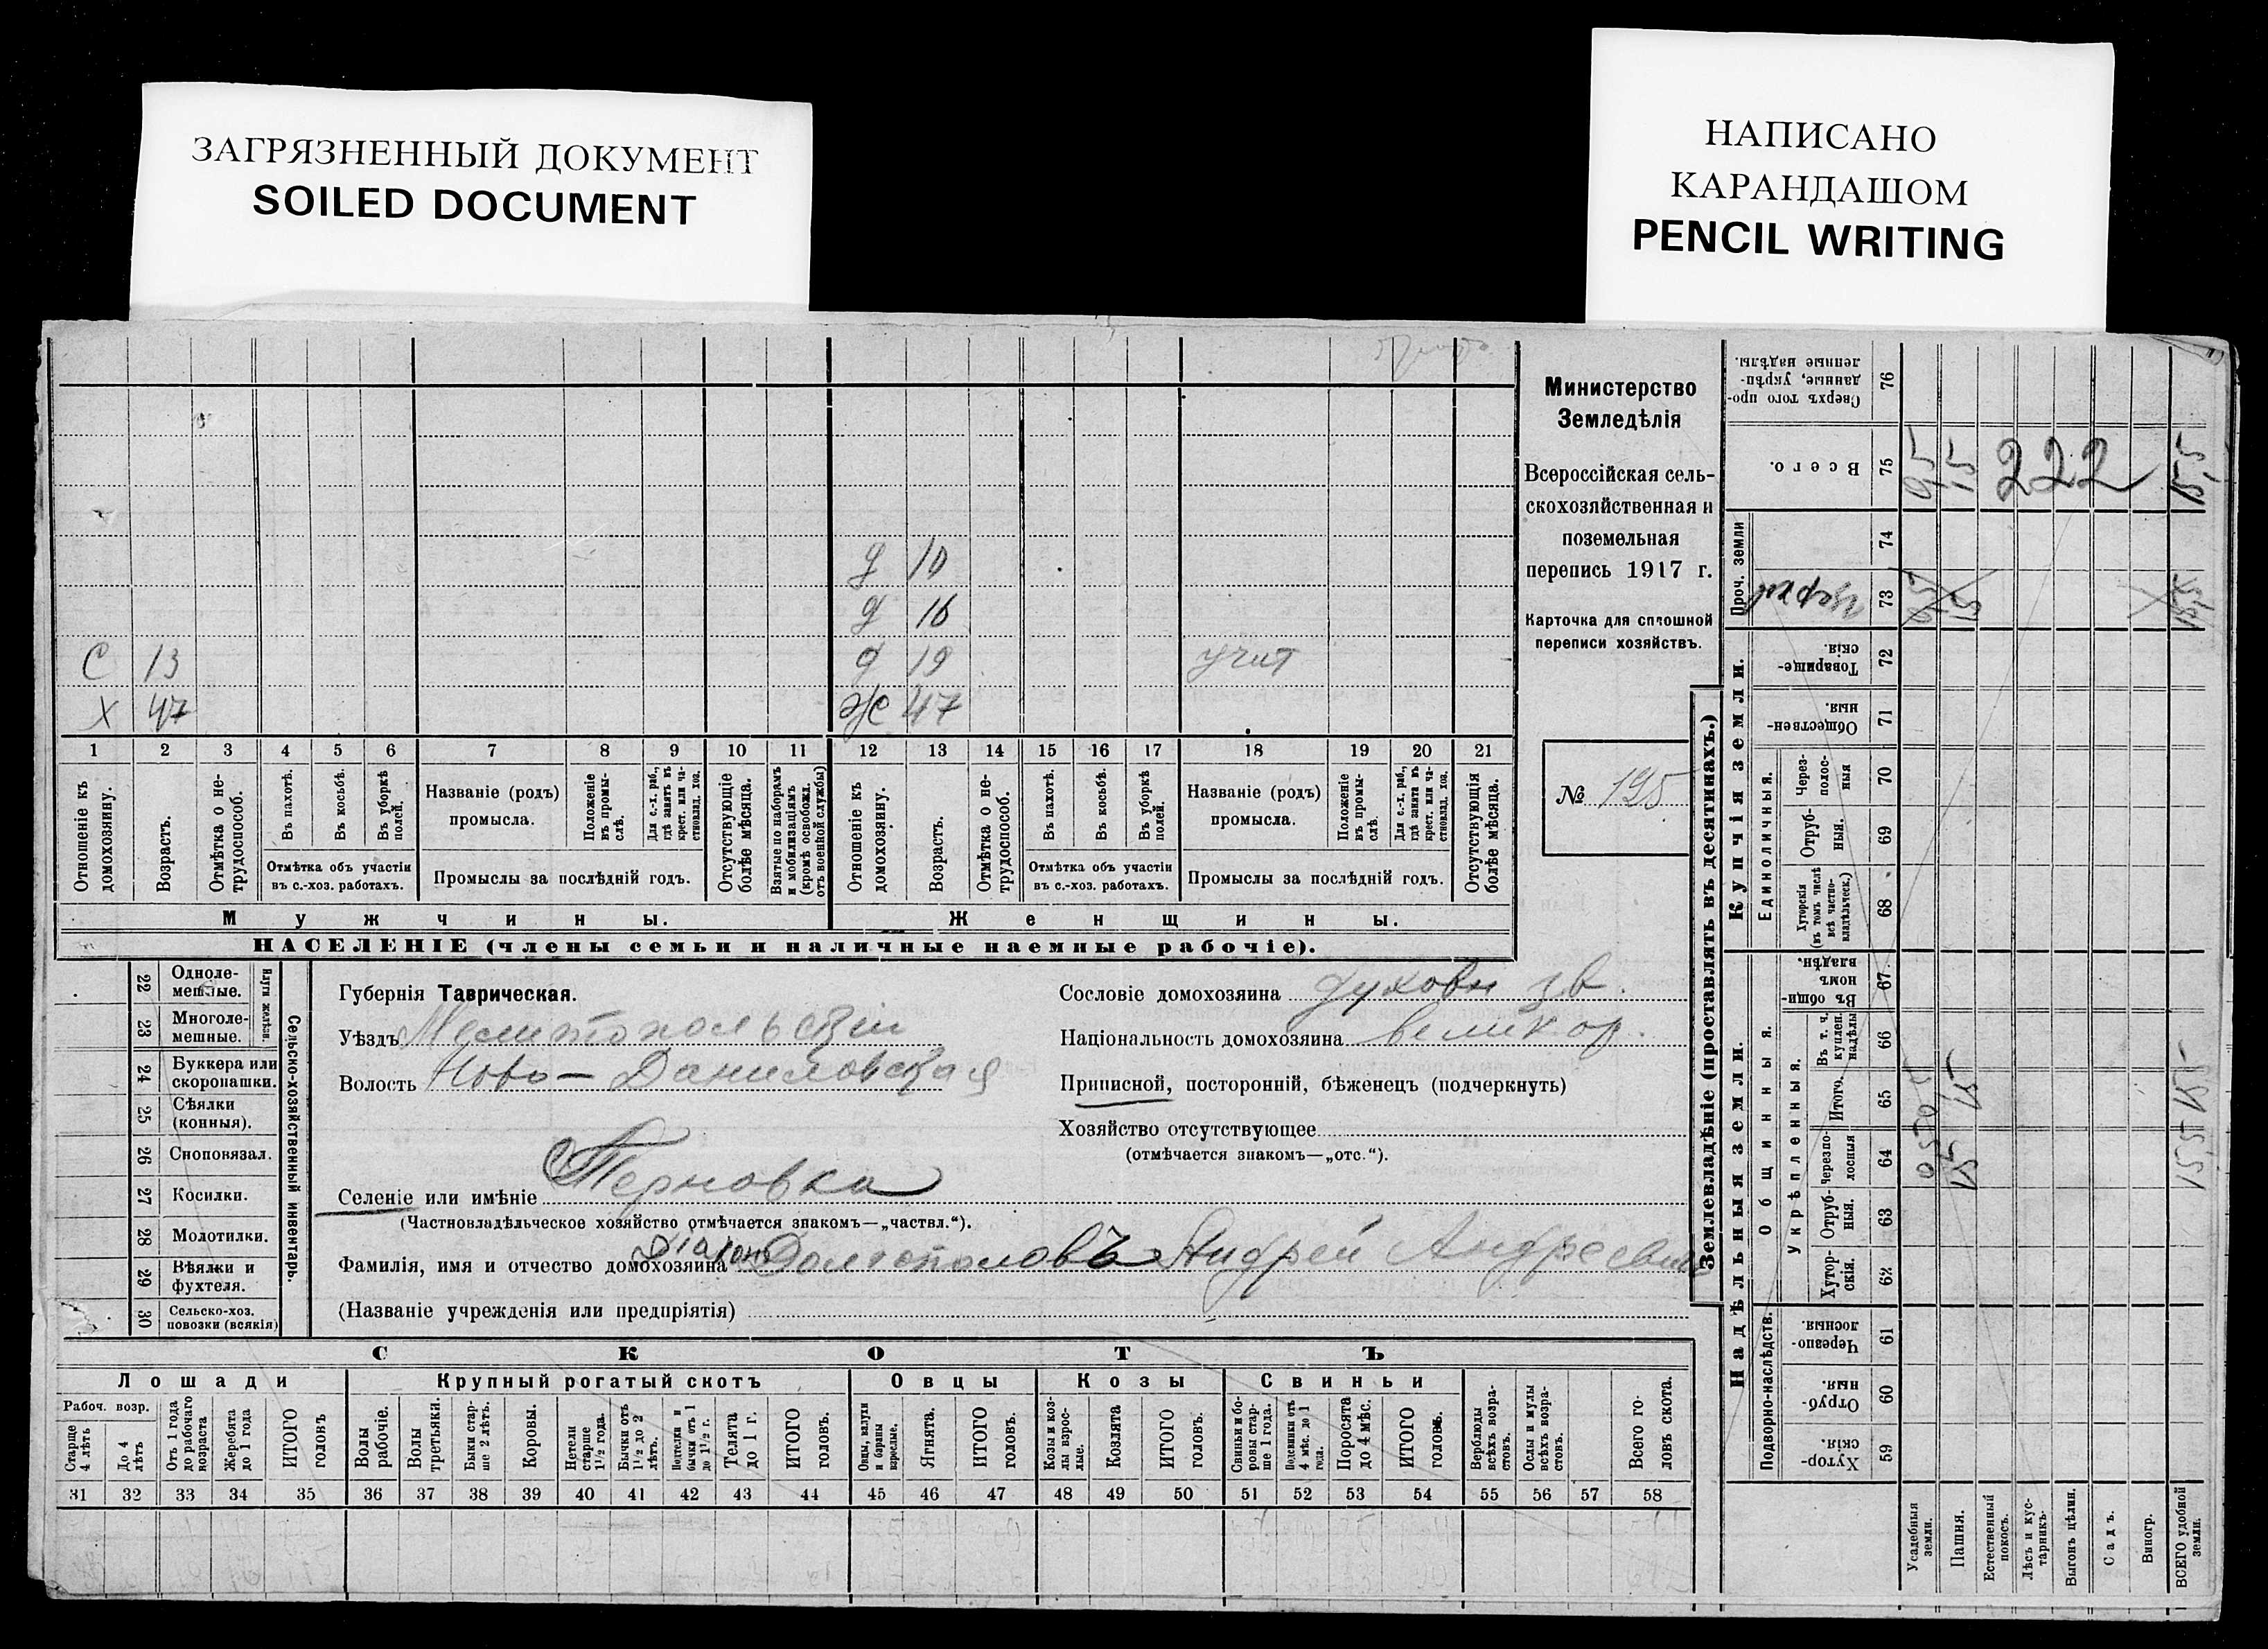 ЗАГРЯЗНЕННЫЙ ДОКУМЕНТ
SOILED DOCUMENT
НАПИСАНО
КАРАНДАШОМ
PENCIL WRITING
д 10
д 16
С 13 д 19 учит
Х 47 Ж 47
1 2 3 4 5 6 7 8 9 10 11 12 13 14 15 16 17 18 19 20 21
Отношеніе къ домохозяину.
Возрастъ.
Отмѣтка о не-трудоспособ.
Въ пахотѣ.
Въ косьбѣ.
Въ уборкѣ полей.
Отмѣтка объ участіи
въ с.-хоз. работахъ.
Названіе (родъ)
промысла.
Положеніе въ промы-слѣ.
Для с.-х. раб., гдѣ занятъ въ крест. или ча-стновлад. хоз.
Промыслы за послѣдній годъ.
Отсутствующіе болѣе мѣсяца.
Взятые по наборамъ и мобилизаціямъ (кромѣ освобожд. отъ военной службы)
Отношеніе къ домохозяину.
Возрастъ.
Отмѣтка о не-трудоспособ.
Въ пахотѣ.
Въ косьбѣ.
Въ уборкѣ полей.
Отмѣтка объ участіи
въ с.-хоз. работахъ.
Названіе (родъ)
промысла.
Положеніе въ промы-слѣ.
Для с.-х. раб., гдѣ занята въ крест. или ча-стновлад. хоз.
Промыслы за послѣдній годъ.
Отсутствующія болѣе мѣсяца.
Мужчины.
Женщины.
НАСЕЛЕНІЕ (члены семьи и наличные наемные рабочіе).
Министерство
Земледѣлія
Всероссійская сель-
скохозяйственная и
поземельная
перепись 1917 г.
Карточка для сплошной
переписи хозяйствъ.
№ 195
22 Одноле-мешные.
23 Многоле-мешные.
Плуги желѣзн.
24 Буккера или скоропашки.
25 Сѣялки (конныя).
26 Сноповязал.
27 Косилки.
28 Молотилки.
29 Вѣялки и фухтеля.
30 Сельско-хоз. повозки (всякія)
Сельско-хозяйственный инвентарь.
Губернія Таврическая.
Уѣздъ Мелитопольскій
Волость Ново-Даниловская
Селеніе или имѣніе Терновка
(Частновладѣльческое хозяйство отмѣчается знакомъ—„частвл.“).
Діаконъ
Фамилія, имя и отчество домохозяина Долгополовъ Андрей Андреевич
(Названіе учрежденія или предпріятія)
Сословіе домохозяина духовн зв.
Національность домохозяина великор.
Приписной, посторонній, бѣженецъ (подчеркнуть)
Хозяйство отсутствующее
(отмѣчается знакомъ—„отс.“).
СКОТЪ
Лошади
Крупный рогатый скотъ
Овцы
Козы
Свиньи
Рабоч. возр.
Старше 4 лѣтъ
До 4 лѣтъ
Отъ 1 года до рабочаго возраста
Жеребята до 1 года
ИТОГО головъ
Волы рабочіе.
Волы третьяки.
Быки стар-ше 2 лѣтъ.
Коровы.
Нетели старше 1½ года.
Бычки отъ 1½ до 2 лѣтъ.
Подтелки и бычки отъ 1 до 1½ г.
Телята до 1 г.
ИТОГО головъ.
Овцы, валухи и бараны взрослые.
Ягнята.
ИТОГО головъ.
Козы и коз-лы взрос-лые.
Козлята
ИТОГО головъ.
Свиньи и бо-ровы стар-ше 1 года.
Подсвинки отъ 4 мѣс. до 1 года.
Поросята до 4 мѣс.
ИТОГО головъ.
Верблюды всѣхъ возра-стовъ.
Ослы и мулы всѣхъ возра-стовъ.
Всего го-ловъ скота.
31 32 33 34 35 36 37 38 39 40 41 42 43 44 45 46 47 48 49 50 51 52 53 54 55 56 57 58
Землевладѣніе (проставлять въ десятинахъ.)
Надѣльныя земли.
Купчія земли.
Проч. земли
Подворно-наслѣдств.
Общинныя.
Укрѣпленныя.
Единоличныя.
Сверхъ того про-данные, укрѣп-ленные надѣлы. 76
Всего. 75 0,5 15 222 15,5
74
церков 73 0,5 15 15,5
Товарище-скія. 72
Обществен-ныя. 71
Через-полос-ныя 70
Отруб-ныя. 69
Хуторскія (въ томъ числѣ всѣ частно-владѣльческ.) 68
Въ общин-номъ владѣн. 67
Въ т. ч. куплен. надѣлы 66
Итого. 65
Черезпо-лосныя 64
Отруб-ныя. 63
Хутор-скія. 62
Черезпо-лосныя 61
Отруб-ныя. 60
Хутор-скія. 59
Усадебныя земли.
Пашня.
Естественный покосъ.
Лѣсъ и кус-тарникъ.
Выгонъ цѣлин.
Садъ.
Виногр.
ВСЕГО удобной земли.